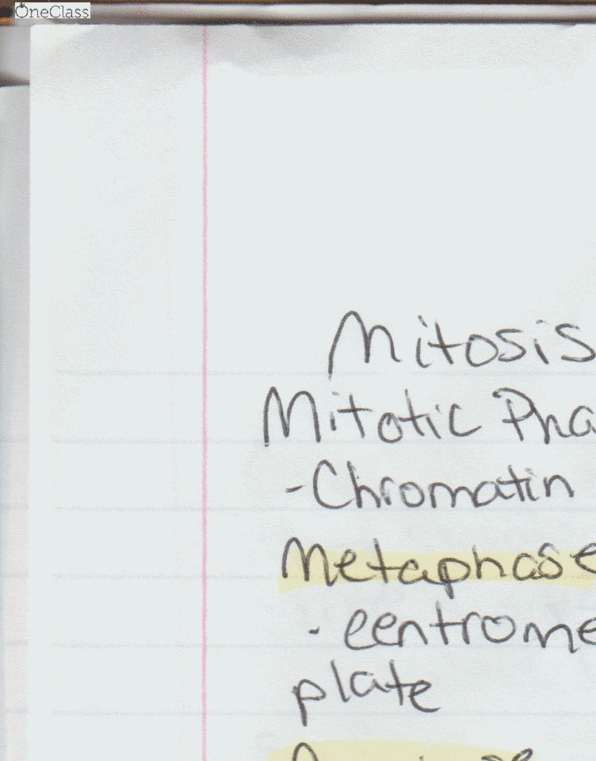 OneClass
Mitosis
Mitotic Pha
-Chromatin
Metaphase
- eentrome
plate